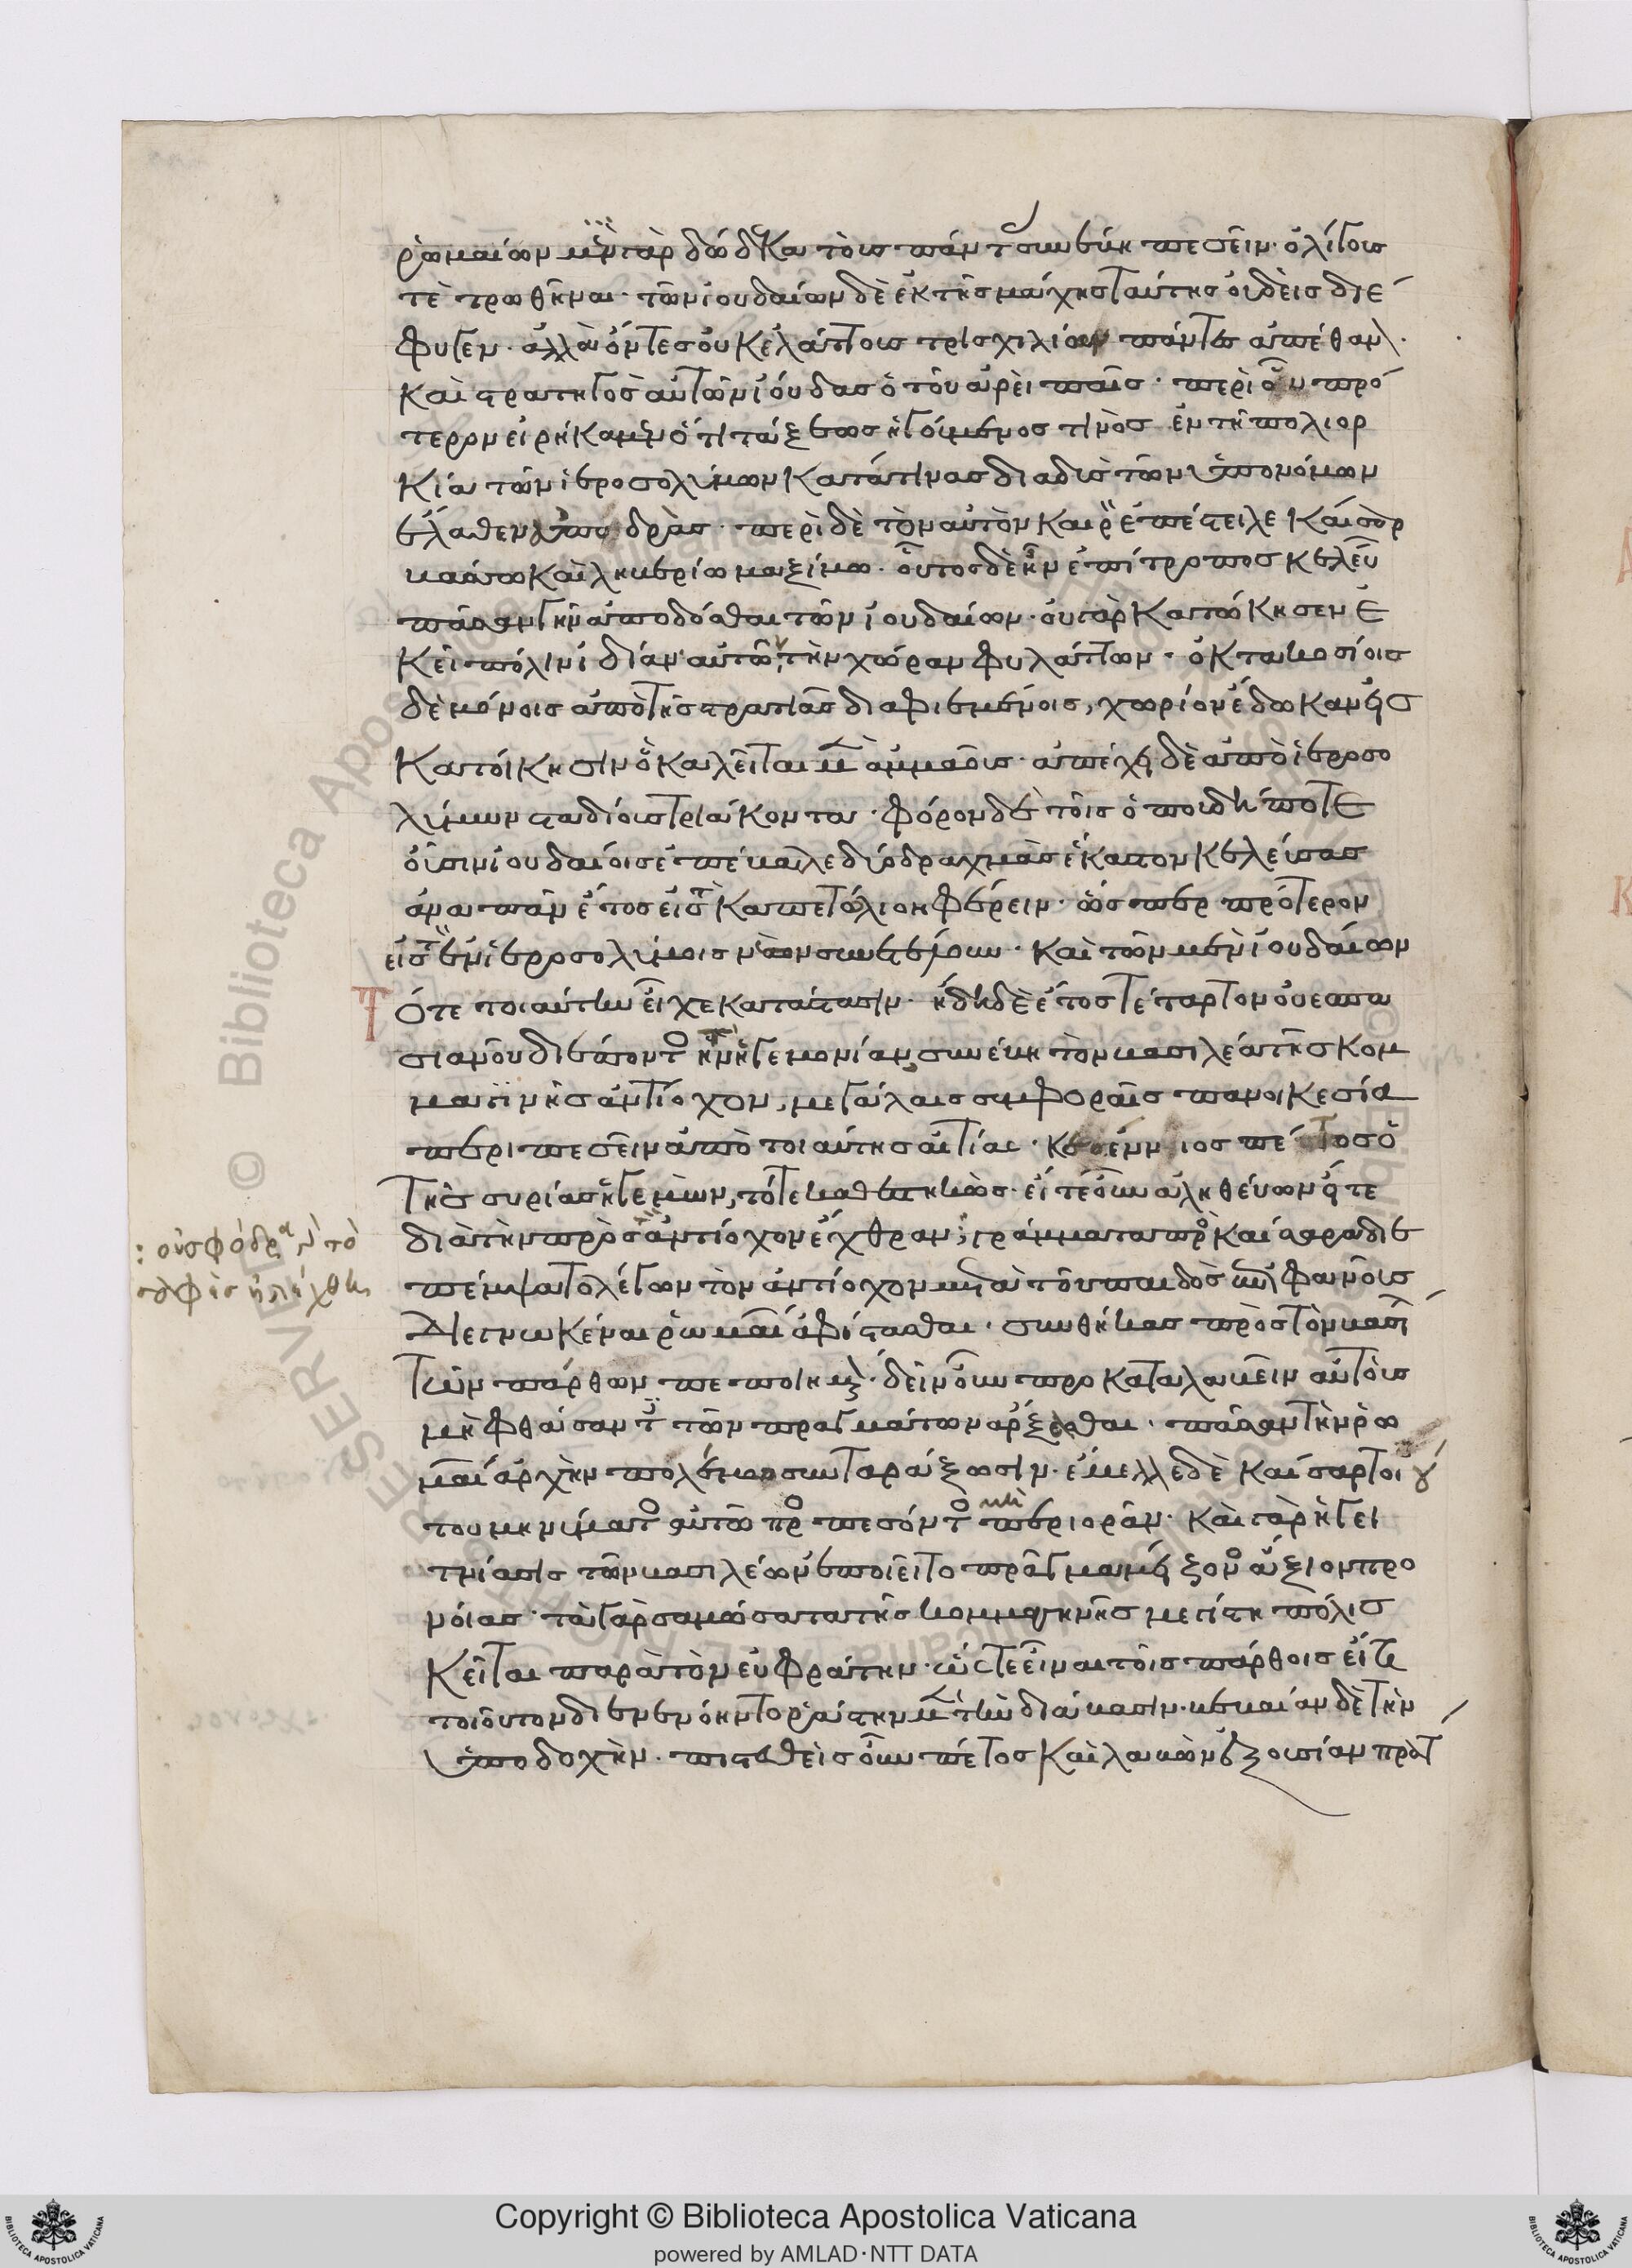 ῥωμαίων μὲν γὰρ δώδεκα τοὺς πάντας συνέβη πεσεῖν· ὀλίγους
τὲ τρωθῆναι· τῶν ἰουδαίων δὲ ἐκ τῆς μάχης ταύτης οὐδεὶς διέ
φυγεν· ἀλλ' ὄντες οὐκ ἐλάττους τρισχιλίων πάντες ἀπέθαν
καὶ στρατηγὸς αὐτῶν ἰούδας ὁ τοῦ ἀρεὶ παῖς· περὶ οὗ πρό
τερον εἰρήκαμεν ὅτι τάξεως ἡγούμενος τινὸς ἐν τῇ πολιορ
κία τῶν ἱεροσολύμων κατάτινας διαδὺς τῶν ὑπονόμων
ἔλαθεν ἀποδρὰς· περὶ δὲ τὸν αὐτὸν καιρὸν ἐπέστειλε καῖσαρ
βάσσω καὶ λιβερίω μαξίμω· οὗτος δὲ ἦν ἐπίτροπος κελεύ
πᾶσαν γῆν ἀποδόσθαι τῶν ἰουδαίων· οὐ γὰρ κατώκησεν ἐ
κεῖ πόλιν ἰδίαν αὐτῶ τὴν χώραν φυλάττων· ὀκτακοσίοις
δὲ μόνοις ἀπὸ τῆς στρατιᾶς διαφιεμένοις, χωρίον ἔδωκαν εἰς
κατοίκησιν ὃ καλεῖται μὲν ἀμμαοῦς· ἀπέχει δὲ ἀπὸ ἱεροσο
λύμων σταδίους τριάκοντα· φόρον δὲ τοῖς ὁποιδήποτε
οὖσιν ἰουδαίοις ἐπέβαλε δύο δραχμὰς ἕκαστον κελεύσας
ἀνα πᾶν ἔτος εἰς τὸ καπετώλιον φέρειν· ὥσπερ πρότερον
εἰς τὸν ἐν ἱεροσολύμοις νεὼν συνετέλουν· καὶ τῶν μὲν ἰουδαίων
Τότε τοιαύτην εἶχε κατάστασιν· ἤδη δὲ ἔτος τέταρτον οὐεσπα
σιανοῦ διέποντος τὴν ἡγεμονίαν, συνέβη τὸν βασιλέα τῆς κομ
μαγηνῆς ἀντίοχον, μεγάλαις συμφοραῖς πανοικεσία
περιπεσεῖν ἀπὸ τοιαύτης αἰτίας· κεσέννιος πέτος ὁ
τῆς συρίας ἡγεμὼν, τότε καθεστηκὼς· εἴτε οὖν ἀληθεύων εἴτε
διὰ τὴν πρὸς ἀντίοχον ἔχθραν, γράμματα πρὸς καίσαρα διε
πέμψατο λέγων τὸν ἀντίοχον μετὰ τοῦ παιδὸς ἐπιφανοῦς
διεγνωκέναι ῥωμαίων ἀφίστασθαι· συνθήκας πρὸς τὸν βασι
τῶν πάρθων πεποιημένον· δεῖν οὖν προκαταλαβεῖν αὐτοὺς
μὴ φθάσαντες τῶν πραγμάτων ἄρξεσθαι· πᾶσαν τὴν ῥω
μαίων ἀρχὴν πολέμω συνταράξωσιν· ἔμελλε δὲ καῖσαρ τοιού
του μηνύματος αὐτῶ προσπεσόντος μὴ περιορᾶν· καὶ γὰρ ἡ γει
τνίασις τῶν βασιλέων ἐποιεῖτο πρᾶγμα μείζονος ἄξιον προ
νοίας· τὰ γὰρ σαμώσατα τῆς κομμαγηνῆς μεγίστη πόλις
κεῖται παρὰ τὸν εὐφράτην· ὥστε εἶναι τοῖς πάρθοις εἴ τι
τοιοῦτον διενενόηντο ῥάστην μὲν τὴν διάβασιν· βεβαίαν δὲ τὴν
ὑποδοχὴν· πιστευθεὶς οὖν πέτος καὶ λαβὼν ἐξουσίαν πράτ